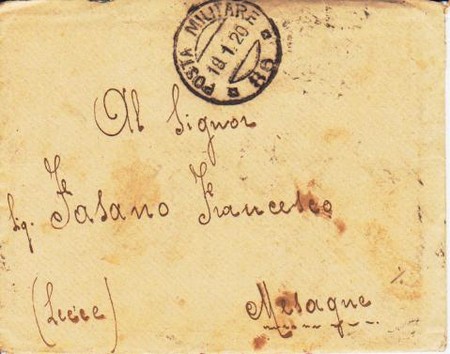 POSTA MILITARE
18.1.20
86
Al Signor
Sig. Fasano Francesco
(Lecce)
Mesagne